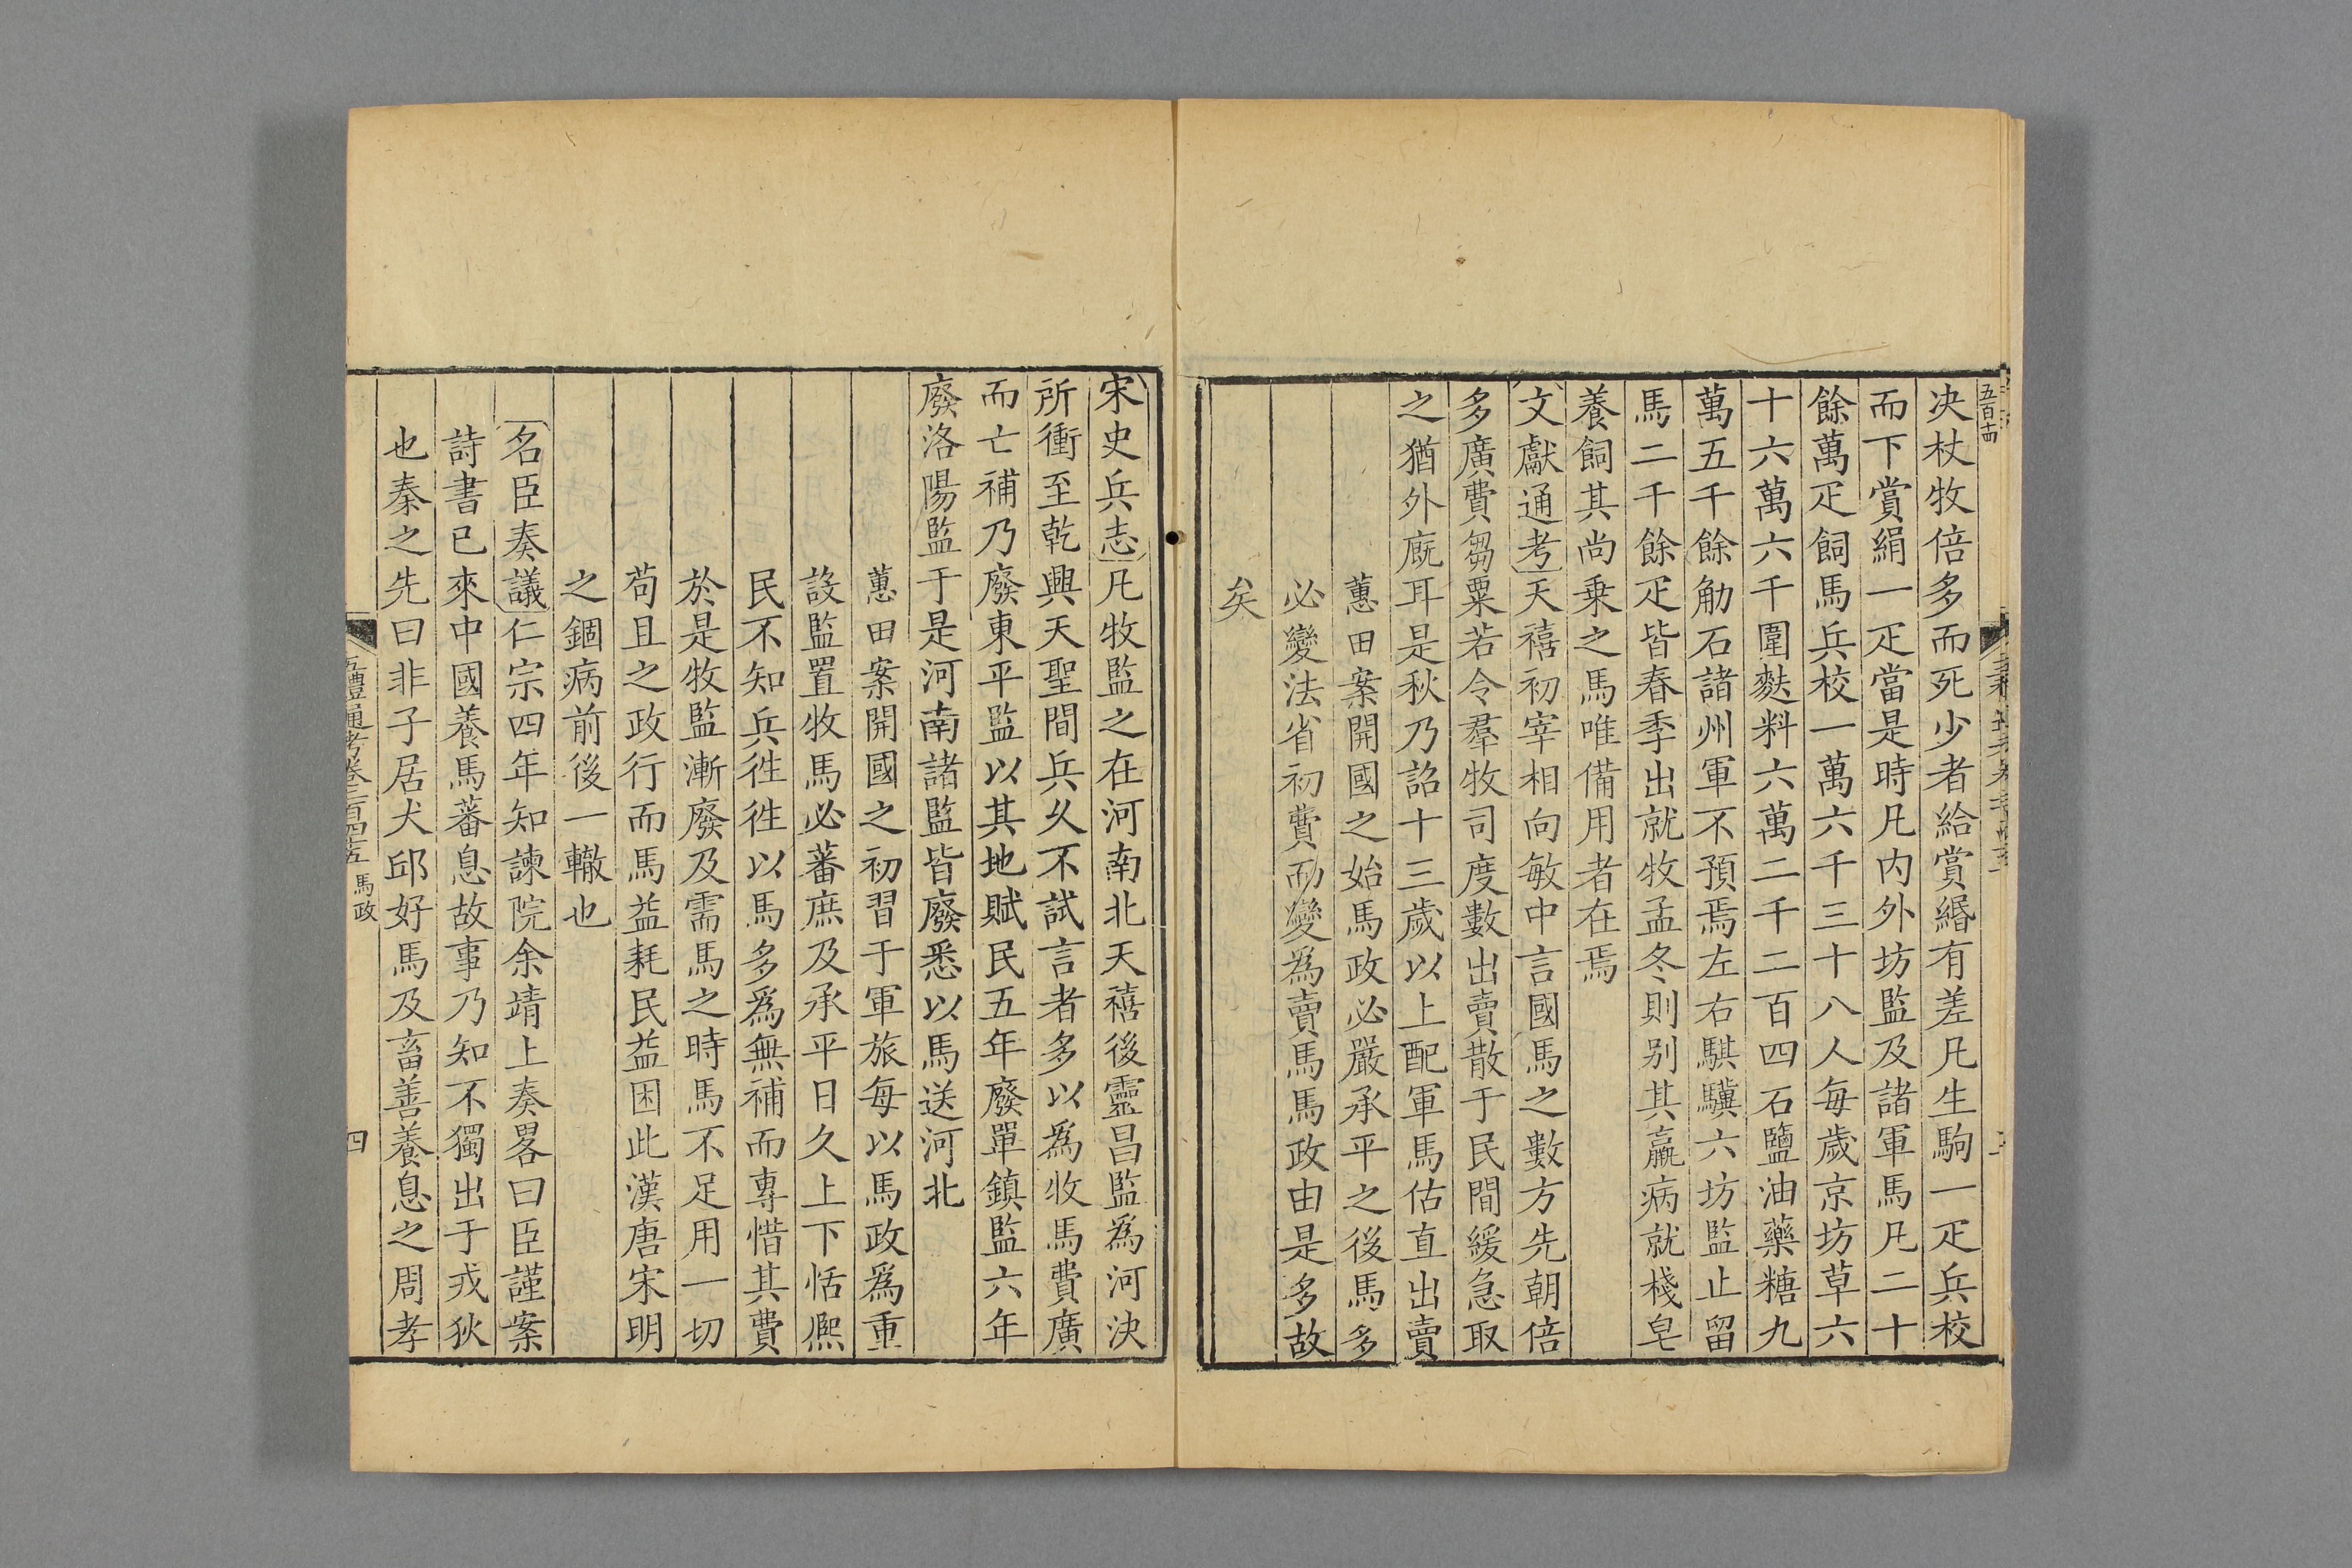 五百古
决杖牧倍多而死少者給賞緡有差凡生駒一疋兵校
而下賞絹一疋當是時凡内外坊監及諸軍馬凡二十
餘萬疋飼馬兵校一萬六千三十八人每歲京坊草六
十六萬六千圍麩料六萬二千二百四石鹽油藥糖九
萬五千餘觔石諸州軍不預焉左右騏驥六坊監止留
馬二千餘疋皆春季出就牧孟冬則别其羸病就棧皂
養飼其尚乗之馬唯備用者在焉
文獻通考天禧初宰相向敏中言國馬之數方先朝倍
多廣費芻粟若令羣牧司度數出賣散于民間緩急取
之猶外廐耳是秋乃詔十三歲以上配軍馬估直出賣
蕙田案開國之始馬政必嚴承平之後馬多
必變法省初費而變為賣馬馬政由是多故
矣
宋史兵志凡牧監之在河南北天禧後靈昌監為河決
所衝至乾興天聖間兵久不試言者多以為牧馬費廣
而亡補乃廢東平監以其地賦民五年廢單鎮監六年
廢洛陽監于是河南諸監皆廢悉以馬送河北
蕙田案開國之初習于軍旅每以馬政爲重
設監置牧馬必蕃庶及承平日久上下恬熈
民不知兵徃徃以馬多爲無補而專惜其費
於是牧監漸廢及需馬之時馬不足用一切
苟且之政行而馬益耗民益困此漢唐宋明
之錮病前後一轍也
名臣奏議仁宗四年知諫院余靖上奏畧曰臣謹案
詩書已來中國養馬蕃息故事乃知不獨出于戎狄
也秦之先曰非子居犬邱好馬及畜善養息之周孝
五禮通考卷二百四十五 馬政
四